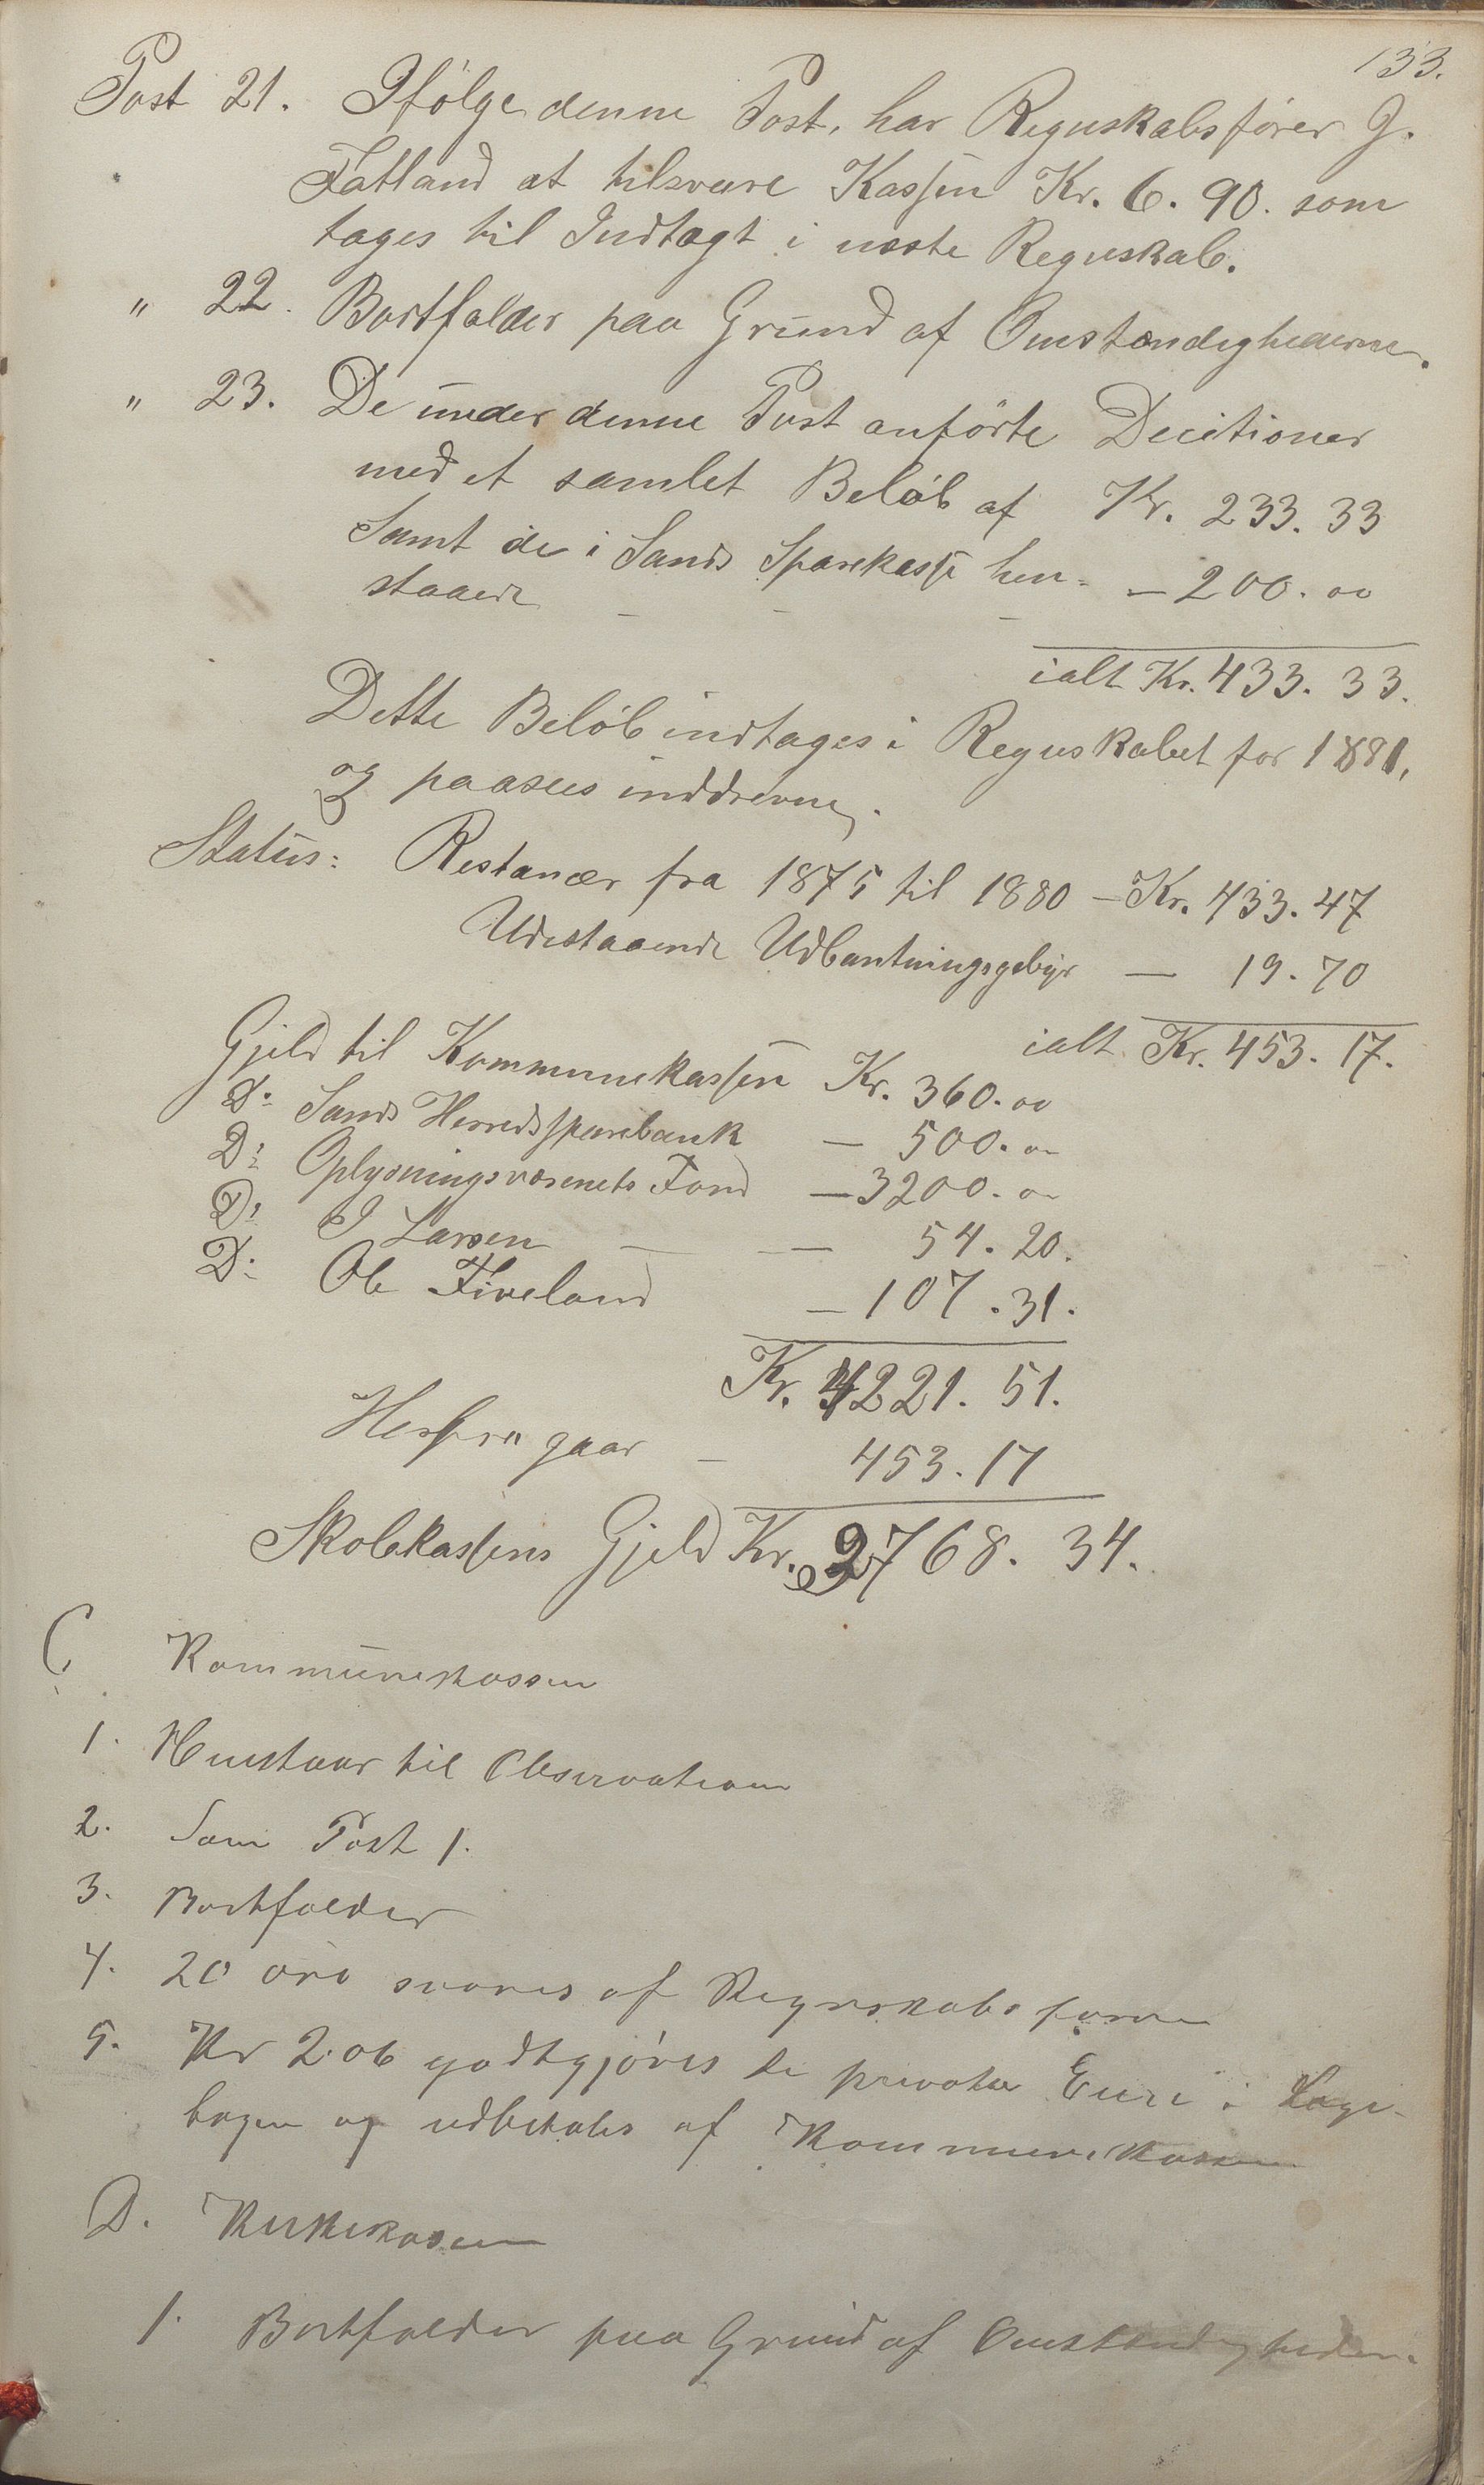 133.
Post 21. Ifölge denne Post, har Regnskabsförer G.
Fatland at tilsvare Kassen Kr. 6. 90. som
tages til Indtægt i næste Regnskab.
" 22. Bortfalder paa Grund af Omstændighederne.
" 23. De under denne Post anförte Decitioner
med et samlet Belöb af Kr. 233. 33
Samt de i Sands Sparekasse hen-
staaende — — — — 200. 00
ialt Kr. 433. 33.
Dette Belöb indtages i Regnskabet for 1881,
og paasees inddrevne.
Status: Restancer fra 1875 til 1880 — Kr. 433. 47
Udestaaende Udpantningsgebyr — 19. 70
ialt Kr. 453. 17.
Gjeld til Kommunekassen Kr. 360. 00
Do Sands Herredssparebank — 500. 00
Do Oplysningsvæsenets Fond — 3200. 00
Do I Larsen — — 54. 20.
Do Ole Fiveland — 107. 31.
Kr. 4221. 51.
Herfra gaar — 453. 17
Skolekassens Gjeld Kr. 3768. 34.
C. Kommunekassen
1. Henstaar til Observation
2. Som Post 1.
3. Bortfalder
4. 20 öre svares af Regnskabsföreren
5. Kr 2.06 godtgjöres de private Eiere i
bogen og udbetales af Kommunekassen
D. Kirkekassen
1. Bortfalder paa Grund af Omstændighederne